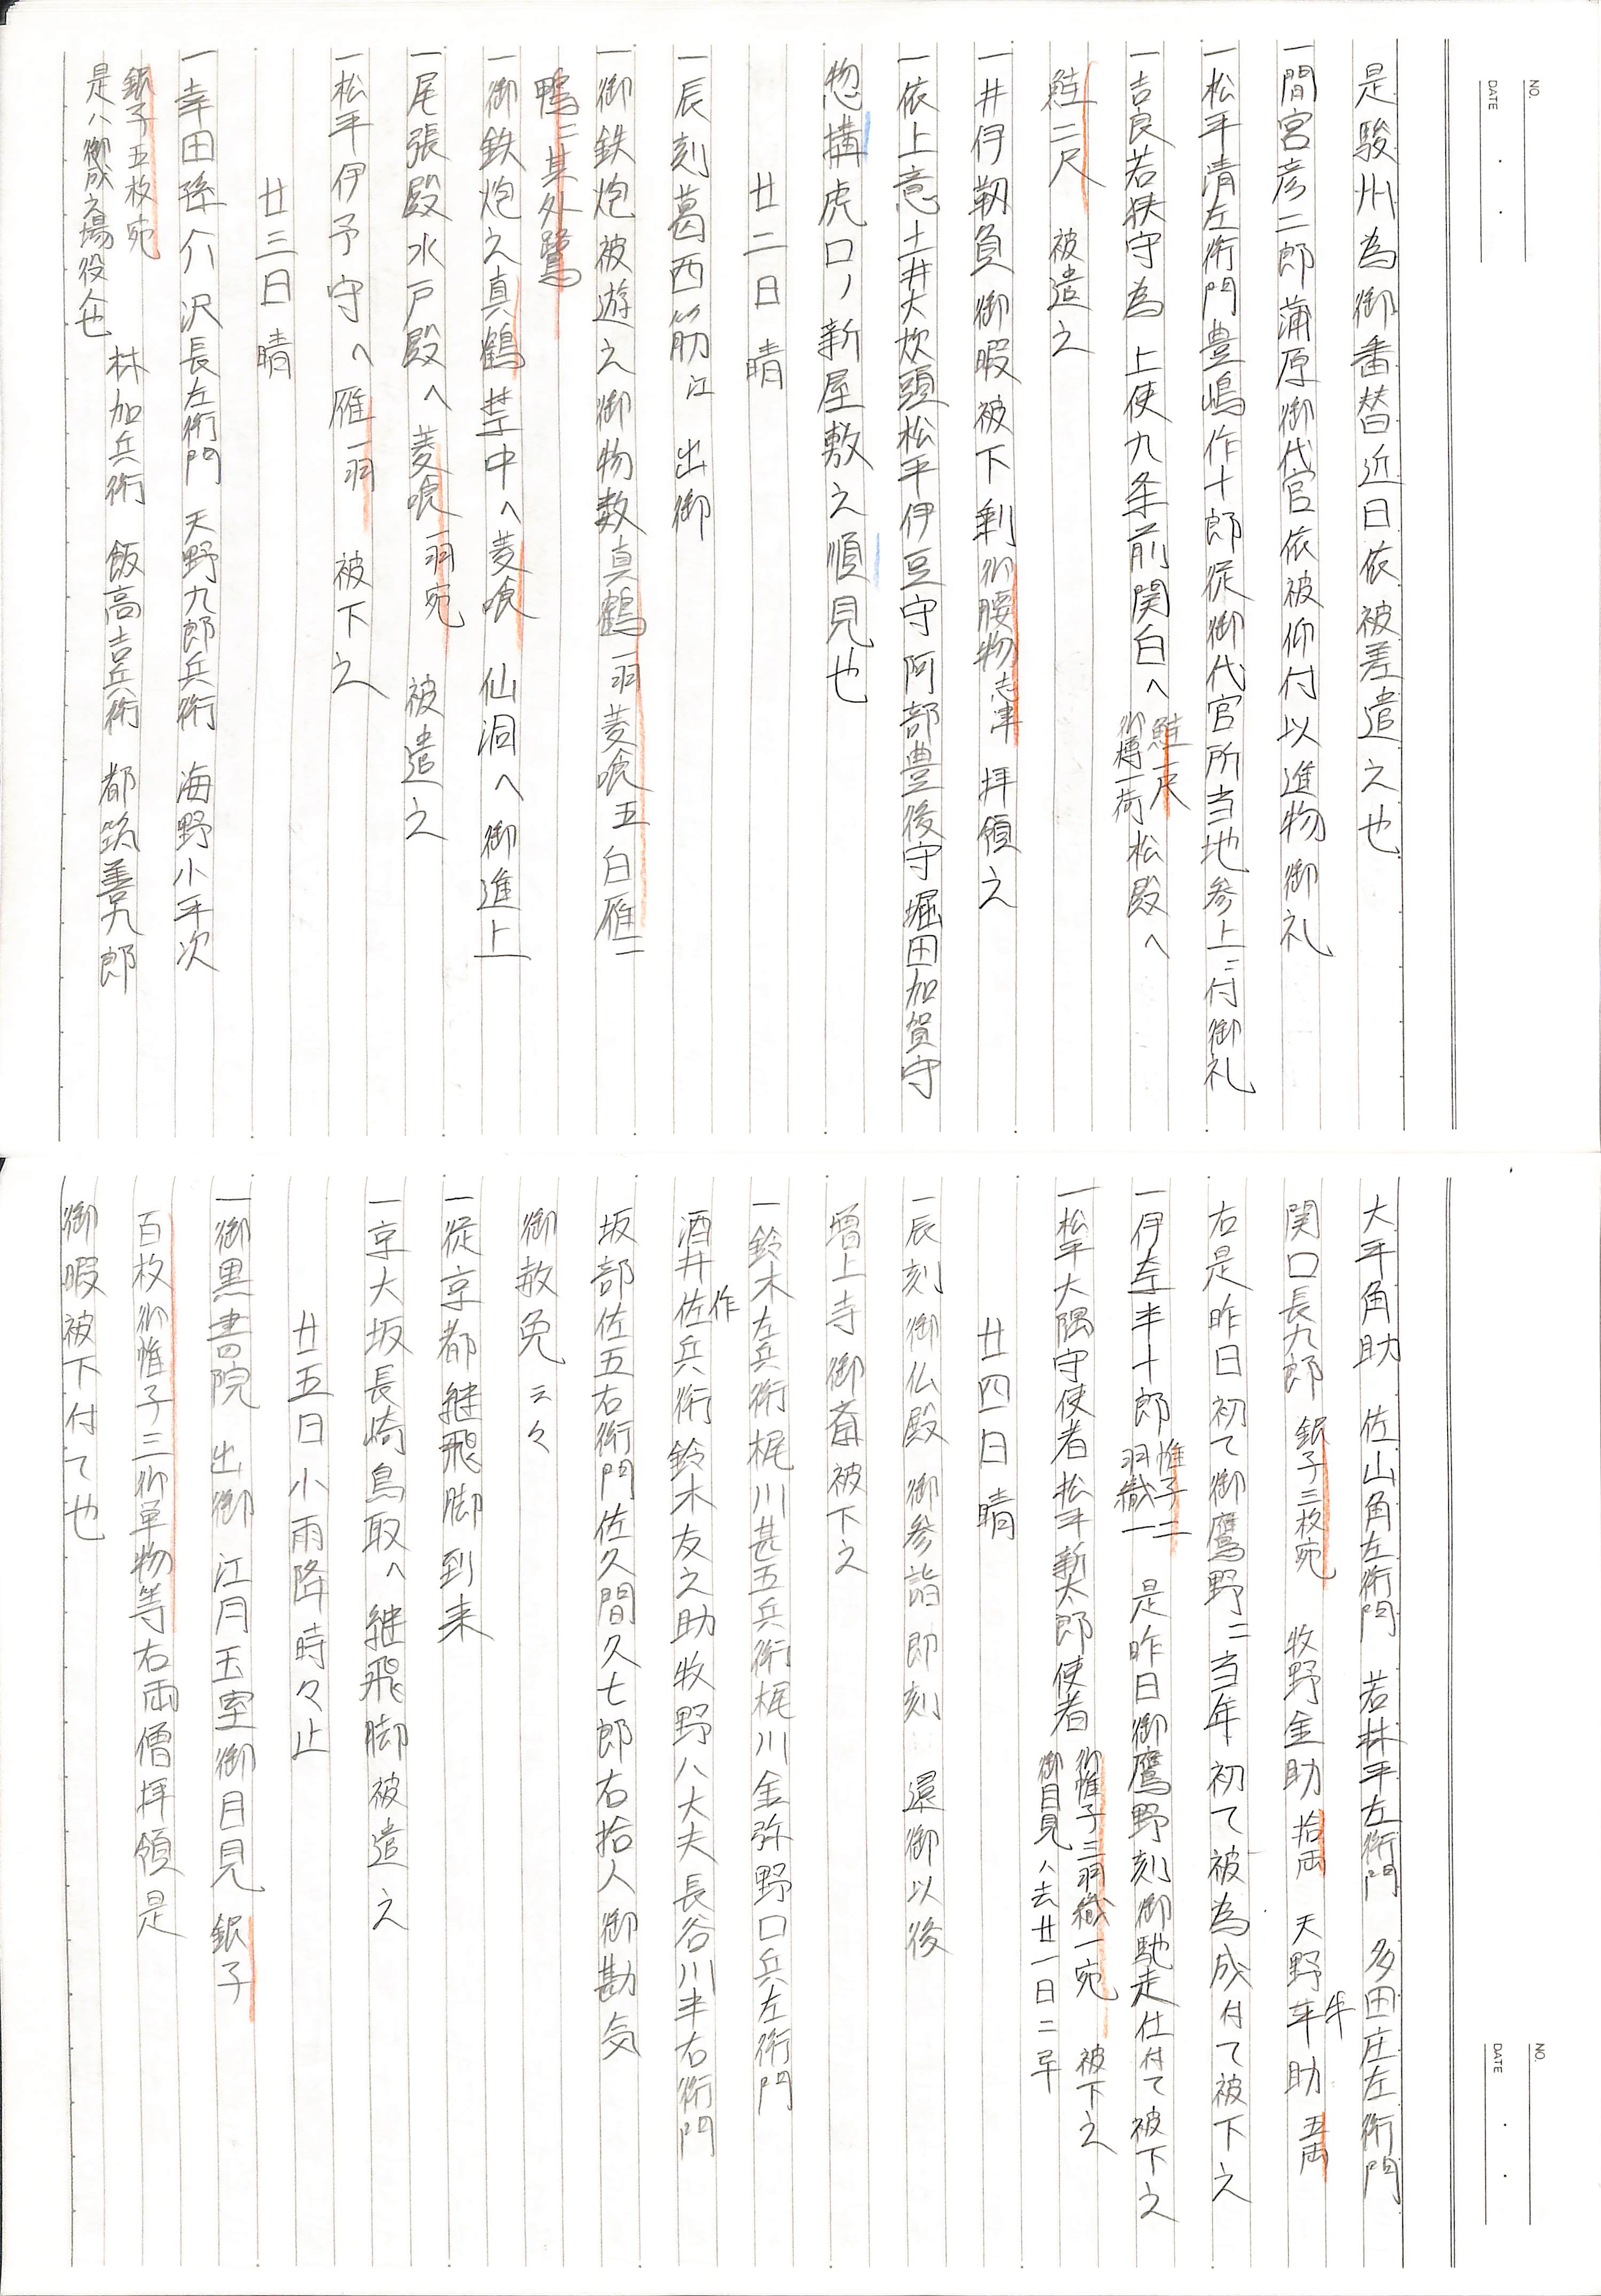 NO.
DATE
是駿州為御番替近日依被差遣之也
一間宮彦二郎蒲原御代官依被仰付以進物御礼
一松平清左衛門豊嶋作十郎従御代官所当地参上ニ付御礼
一吉良若狭守為 上使九条前関白へ 鮭一尺 御樽一荷 松殿へ
鮭二尺 被遣之
一井伊靱負御暇被下剰御腰物志津 拝領之
一依上意土井大炊頭松平伊豆守阿部豊後守堀田加賀守
惣構虎口ノ新屋敷之順見也
廿二日 晴
一辰刻葛西筋江 出御
一御鉄炮被遊之御物数真鶴一羽菱喰五白雁二
鴨二其外鷺
一御鉄炮之真鶴禁中へ菱喰 仙洞へ御進上
一尾張殿水戸殿へ菱喰一羽宛 被遣之
一松平伊予守へ雁一羽 被下之
廿三日 晴
一幸田孫介 沢長左衛門 天野九郎兵衛 海野小平次
銀子五枚宛
是ハ御成之場役人也
林加兵衛 飯高吉兵衛 都筑善九郎
NO.
DATE
大平角助 佐山角左衛門 若林平左衛門 多田庄左衛門
関口長九郎 銀子三枚宛 牧野金助 拾両 天野半助 五両
右是昨日初て御鷹野ニ当年初て被為成付て被下之
一伊奈半十郎 帷子二 羽織一 是昨日御鷹野刻御馳走仕付て被下之
一松平大隅守使者松平新太郎使者 御帷子三羽織一宛 被下之
御目見ハ去廿一日ニ早
廿四日 晴
一辰刻御仏殿御参詣即刻 還御以後
増上寺御斎被下之
一鈴木左兵衛梶川甚五兵衛梶川金弥野口兵左衛門
酒井佐兵衛鈴木友之助牧野八大夫長谷川半右衛門
作
坂部佐五右衛門佐久間久七郎右拾人御勘気
御赦免云々
一従京都継飛脚到来
一京大坂長崎鳥取へ継飛脚被遣之
廿五日小雨降時々止
一御黒書院 出御 江月玉室御目見 銀子
百枚御帷子三御単物等右両僧拝領是
御暇被下付て也